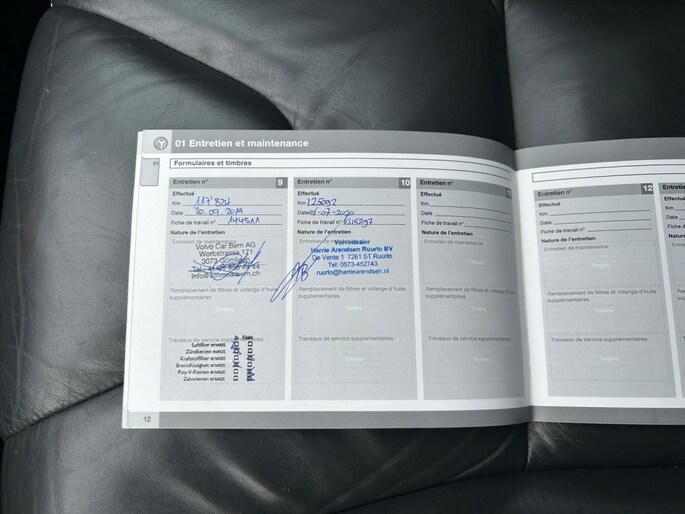 01 Entretien et maintenance
01
Formulaires et timbres
Entretien n° 9
Effectué
Km 117'824
Date 20.09.2019
Fiche de travail n° 144511
Nature de l'entretien
Entretien de maintenance
Volvo Car Bern AG
Worbstrasse 171
3073 Gümligen
Remplacement de filtres et vidange d'huile
supplémentaires
Timbre
Travaux de service supplémentaires
Ja Nein
Luftfilter ersetzt
Zündkerzen ersetzt
Kraftstofffilter ersetzt
Bremsflüssigkeit ersetzt
Poly-V-Riemen ersetzt
Zahnriemen ersetzt
Entretien n° 10
Effectué
Km 125092
Date
Fiche de travail n°
Nature de l'entretien
Entretien de
Volvodealer
Harrie Arendsen Ruurlo BV
De Vente 1 7261 ST Ruurlo
Tel: 0573-452743
ruurlo@harriearendsen.nl
Remplacement de filtres et vidange d'huile
supplémentaires
Timbre
Travaux de service supplémentaires
Timbre
Entretien n°
Effectué
Km
Date
Fiche de travail n°
Nature de l'entretien
Entretien de maintenance
Remplacement de filtres et vidange d'huile
supplémentaires
Timbre
Travaux de service supplémentaires
Timbre
Entretien n° 12
Effectué
Km
Date
Fiche de travail n°
Nature de l'entretien
Entretien de maintenance
Remplacement de filtres et vidange d'huile
supplémentaires
Timbre
Travaux de service supplémentaires
Timbre
12